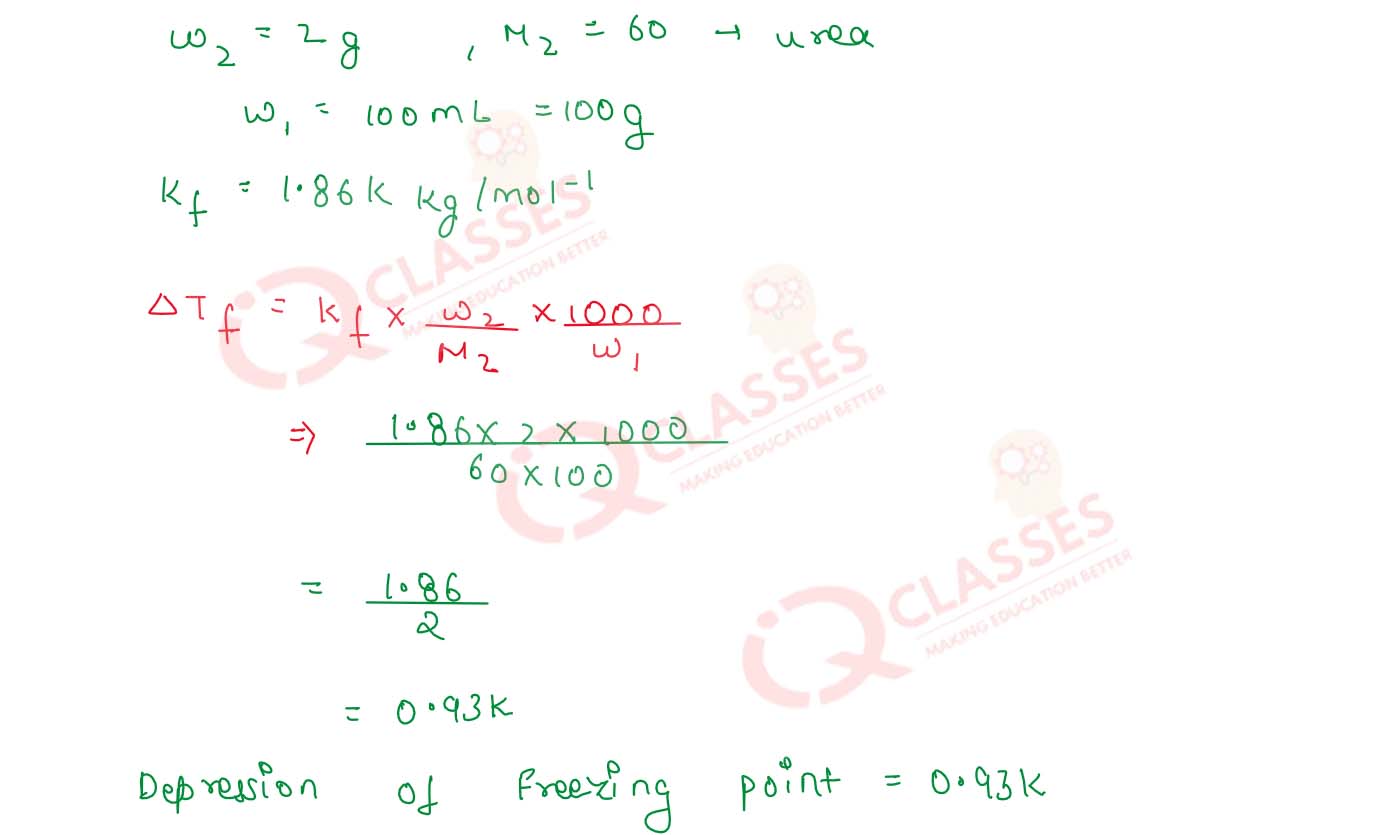 w₂ = 2g , M₂ = 60 → urea
w₁ = 100mL = 100g
Kf = 1.86K Kg/mol⁻¹
ΔTf = Kf × w₂/M₂ × 1000/w₁
⇒ 1.86 × 2 × 1000
60 × 100
= 1.86/2
= 0.93K
Depression of Freezing point = 0.93K
iQ CLASSES
MAKING EDUCATION BETTER
iQ CLASSES
MAKING EDUCATION BETTER
iQ CLASSES
MAKING EDUCATION BETTER